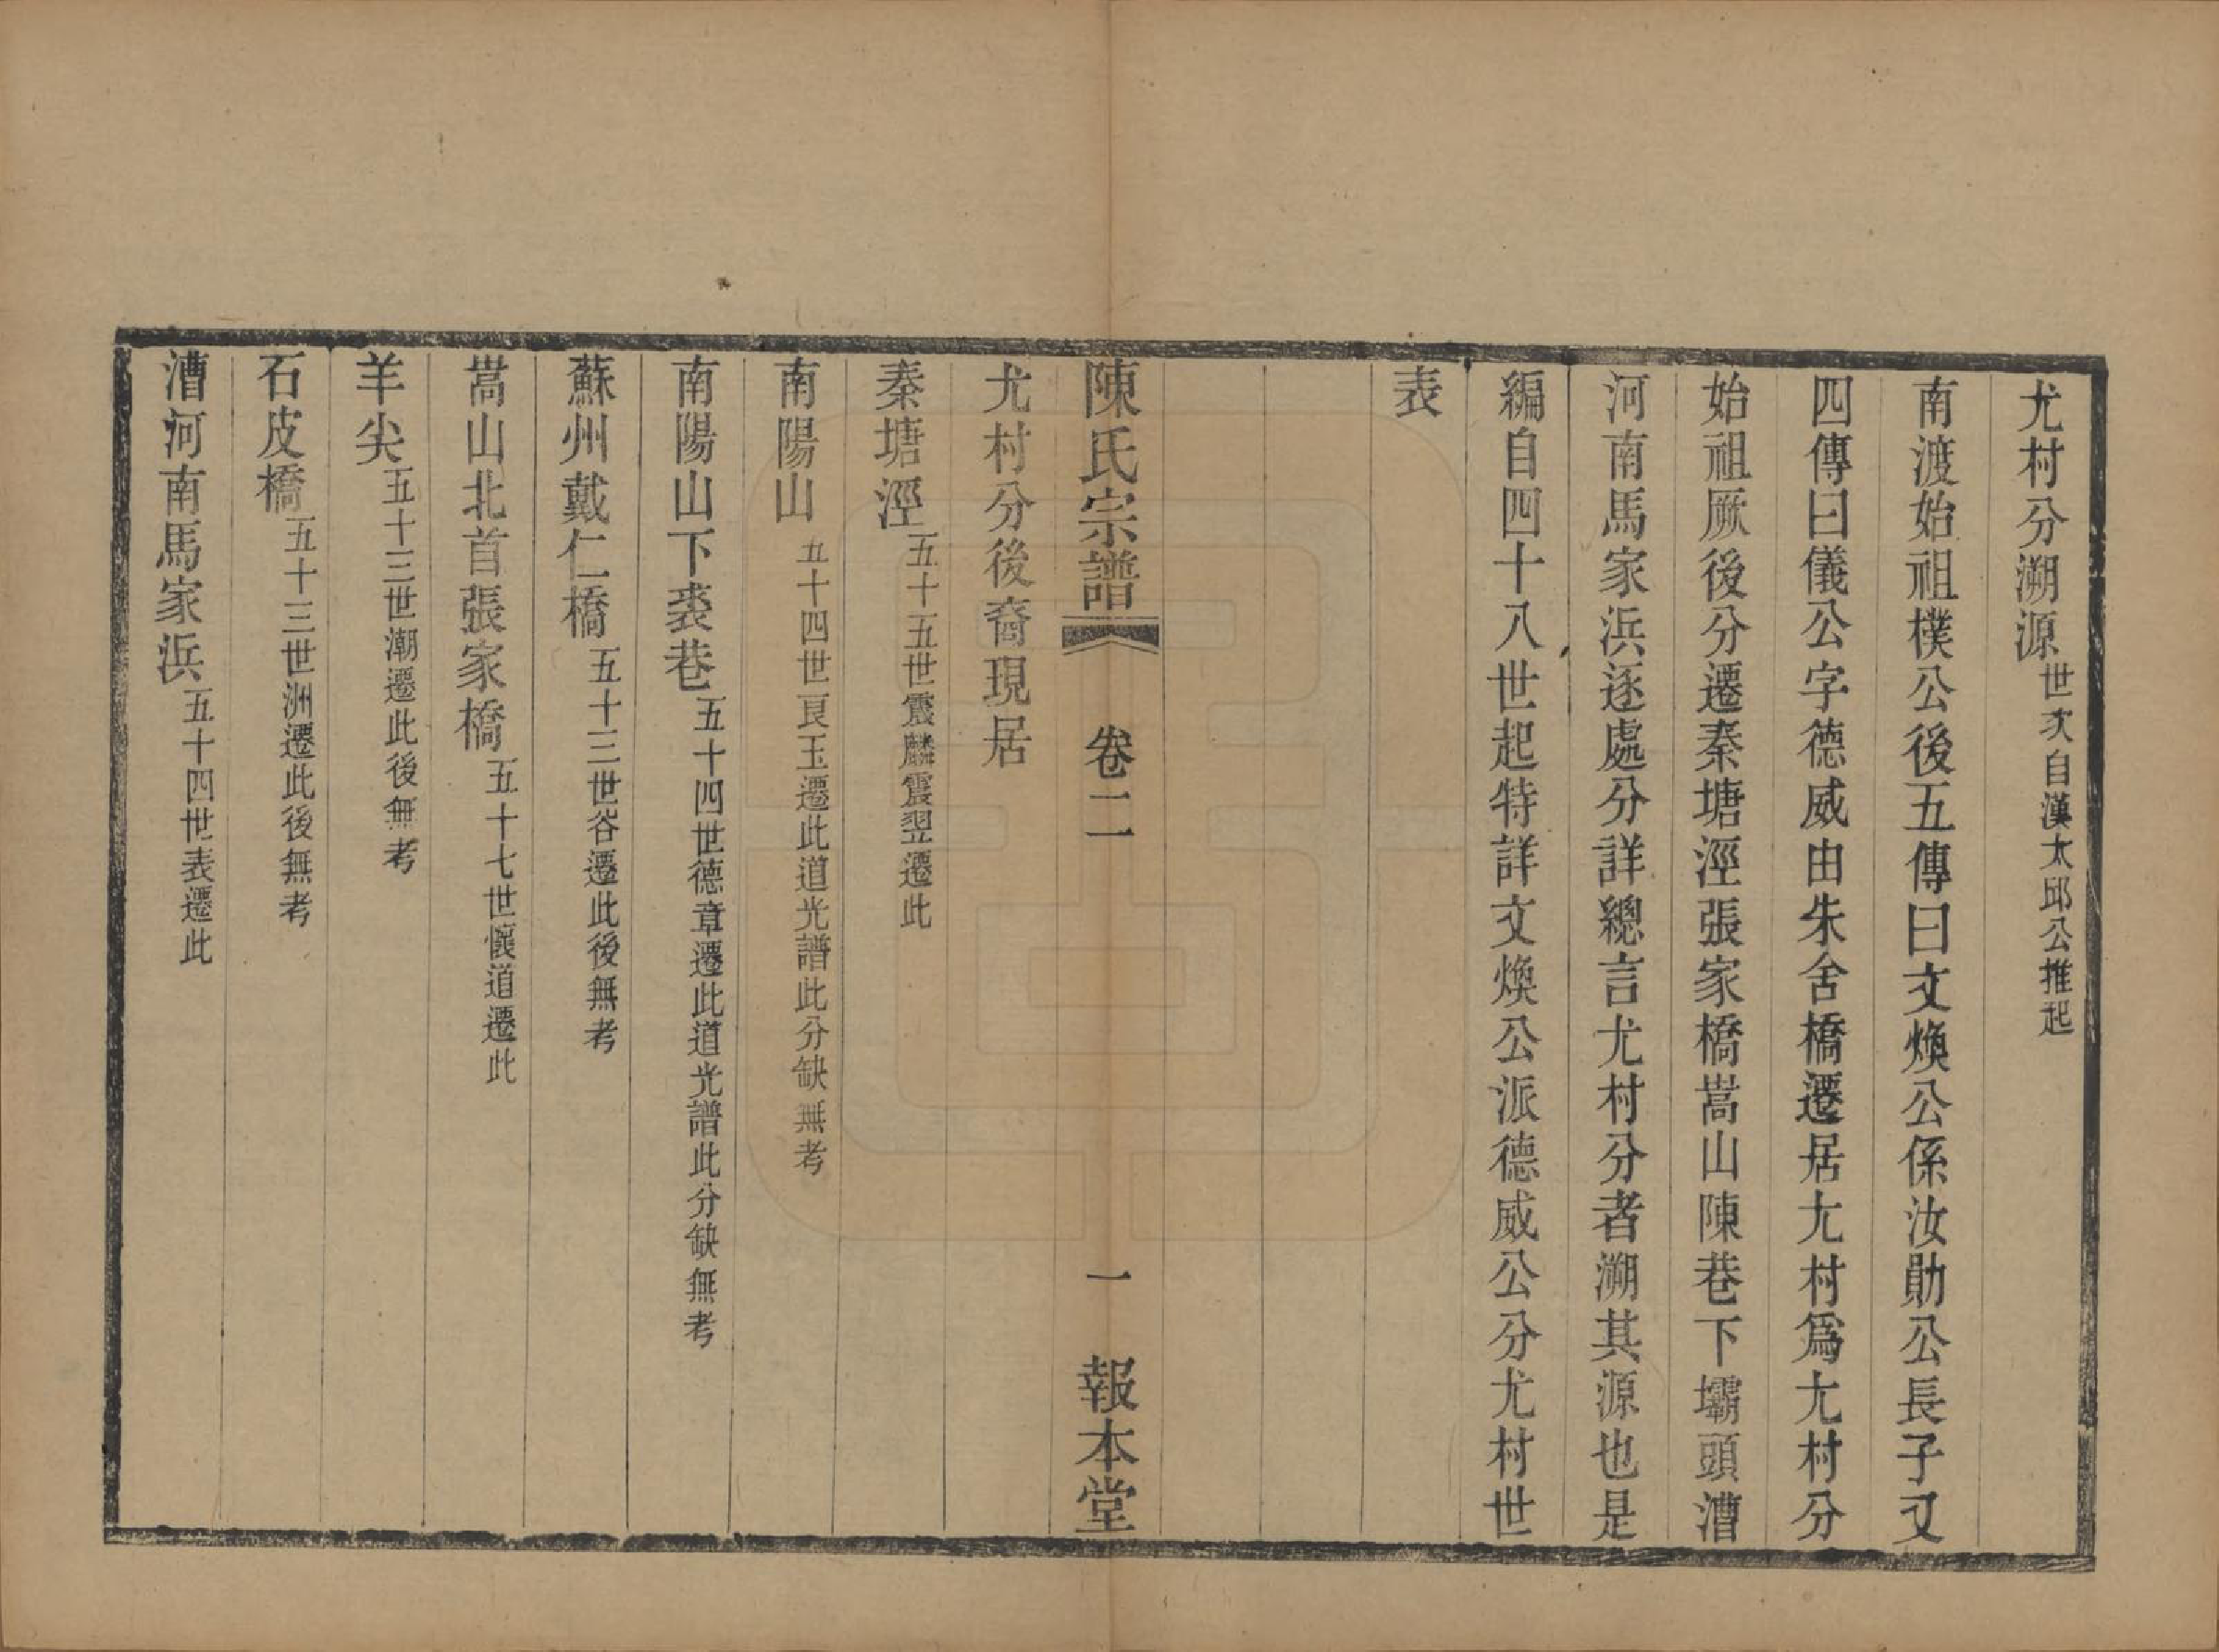 尤村分溯源世次自漢太邱公推起
南渡始祖樸公後五傳曰文煥公係汝勛公長子又
四傳曰儀公字德威由朱舍橋遷居尤村爲尤村分
始祖厥後分遷秦塘涇張家橋嵩山陳巷下壩頭漕
河南馬家浜逐處分詳總言尤村分者溯其源也是
編自四十八世起特詳文煥公派德威公分尤村世
表
陳氏宗譜 卷二 一 報本堂
尤村分後裔現居
秦塘涇五十五世震麟震翌遷此
南陽山五十四世良玉遷此道光譜此分缺無考
南陽山下裘巷五十四世德章遷此道光譜此分缺無考
蘇州戴仁橋五十三世谷遷此後無考
嵩山北首張家橋五十七世懷道遷此
羊尖五十三世潮遷此後無考
石皮橋五十三世洲遷此後無考
漕河南馬家浜五十四世表遷此